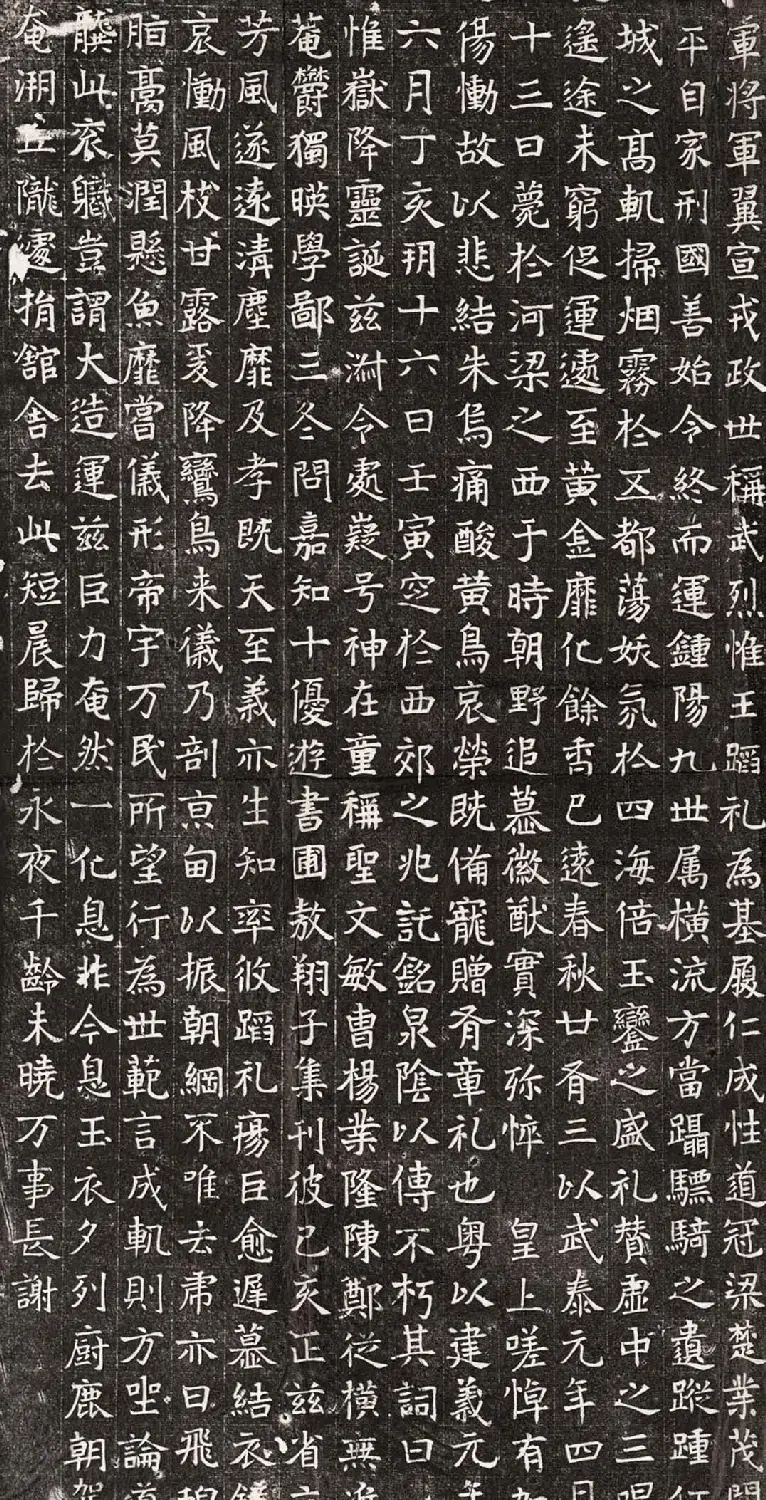 軍將軍翼宣戎政世稱武烈惟王蹈礼為基履仁成性道冠梁楚業茂間
平自家刑國善始令終而運鍾陽九世属橫流方當躡驃騎之遺蹤踵
城之髙軌掃烟霧於五都蕩妖氛於四海倍玉鑾之盛礼賛虛中之三
遙途未窮促運遽至黄金靡化餘香已遠春秋廿有三以武泰元年四月
十三日薨於河梁之西于時朝野追慕徽猷實深弥悴皇上嗟悼有
傷慟故以悲結朱鳥痛酸黄鳥哀榮既備寵贈有章礼也粤以建義元年
六月丁亥朔十六日壬寅窆於西郊之兆託銘泉陰以傳不朽其詞曰
惟嶽降靈誕兹淵令處嶷号神在童稱聖文敏曺楊業隆陳鄭従橫無
菴欝獨暎學鄙三冬問嘉知十優遊書圃敖翔子集刊彼己亥正兹省
芳風遂遠清塵靡及孝既天至義亦生知率彼蹈礼瘍巨愈遲慕結衣
哀慟風枝甘露爰降鸞鳥来儀乃剖京甸以振朝綱不唯去肅亦曰飛
脂膏莫潤懸魚靡嘗儀形帝宇万民所望行為世範言成軌則方坐論道
龔此衮職豈謂大造運兹巨力奄然一化息非今息玉衣夕列廚鹿朝
奄溯丘隴遽捐舘舎去此短晨歸於永夜千齡未曉万事長謝